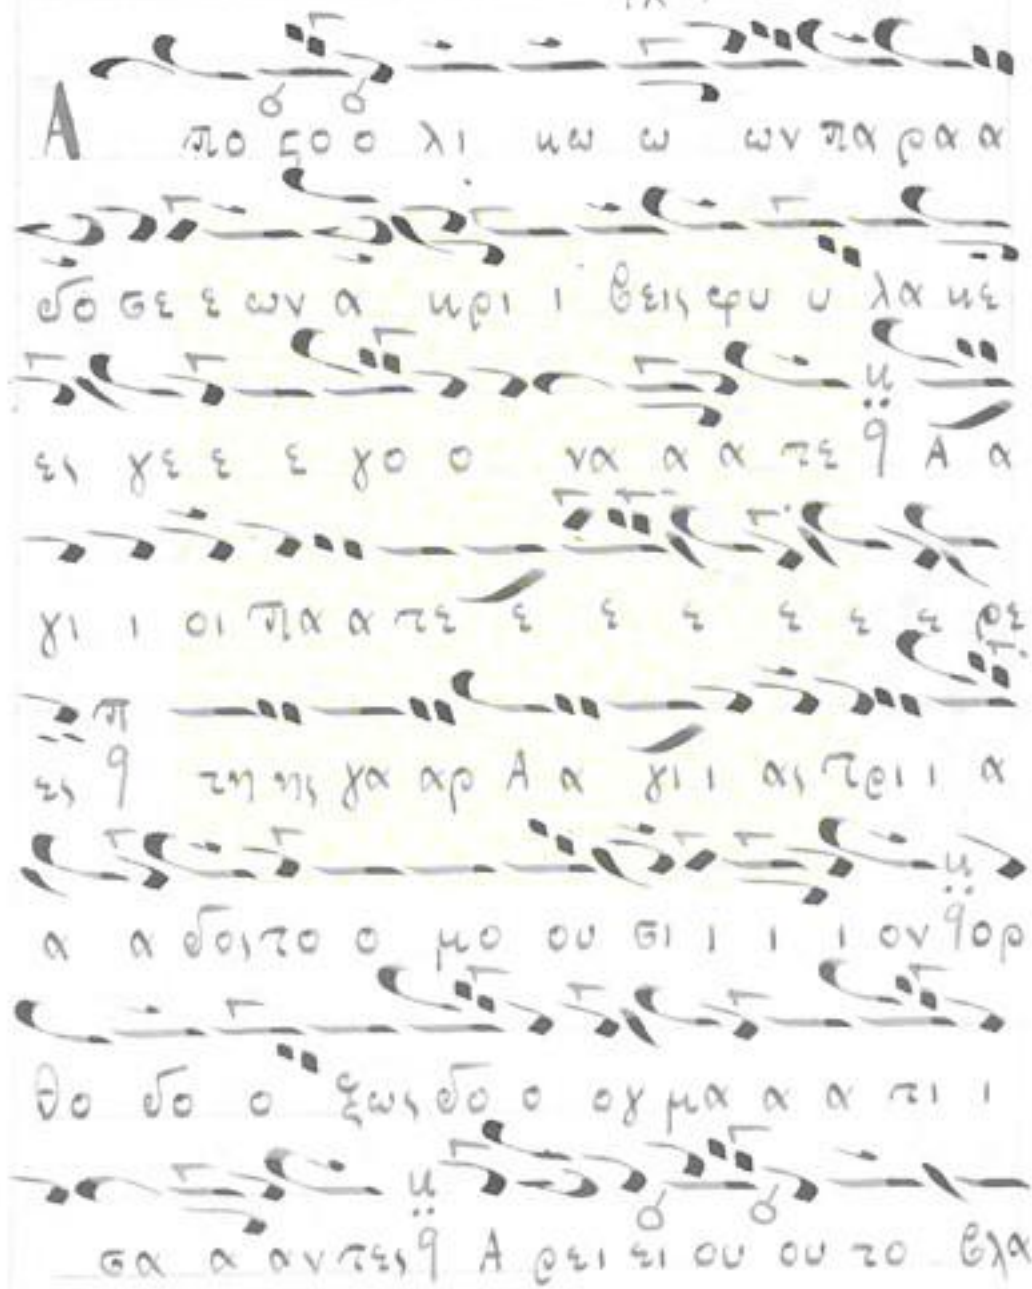 Α πο ϛο ο λι κω ω ων πα ρα α
δο σε ε ων α κρι ι βεις φυ υ λα κε
ες γε ε ε γο ο να α α τε Α α
γι ι οι πα α τε ε ε ε ε ε ε ρε
ες τη ης γα αρ Α α γι ι ας τρι ι α
α α δος το ο μο ου σι ι ι ι ον ορ
θο δο ο ξως δο ο ογ μα α α τι ι
σα α αν τες Α ρει ει ου ου το βλα